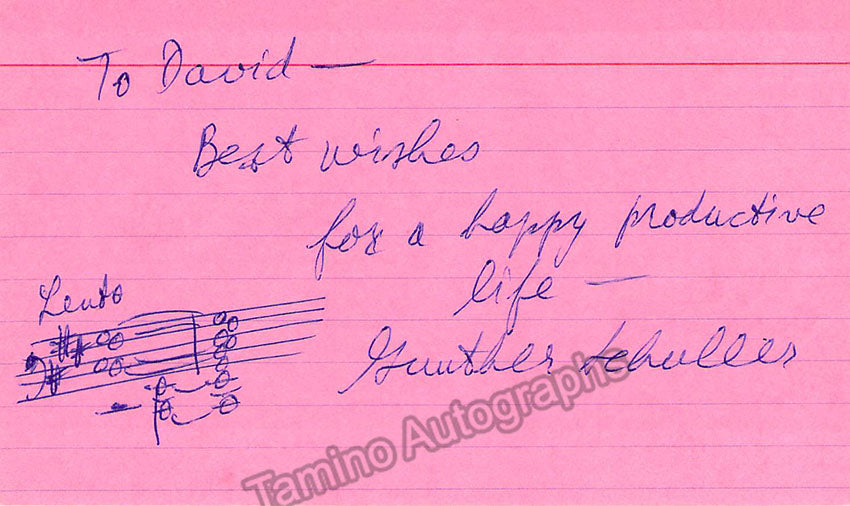 To David —
Best wishes
for a happy productive
life —
Lento
Gunther Schuller
Tamino Autographs